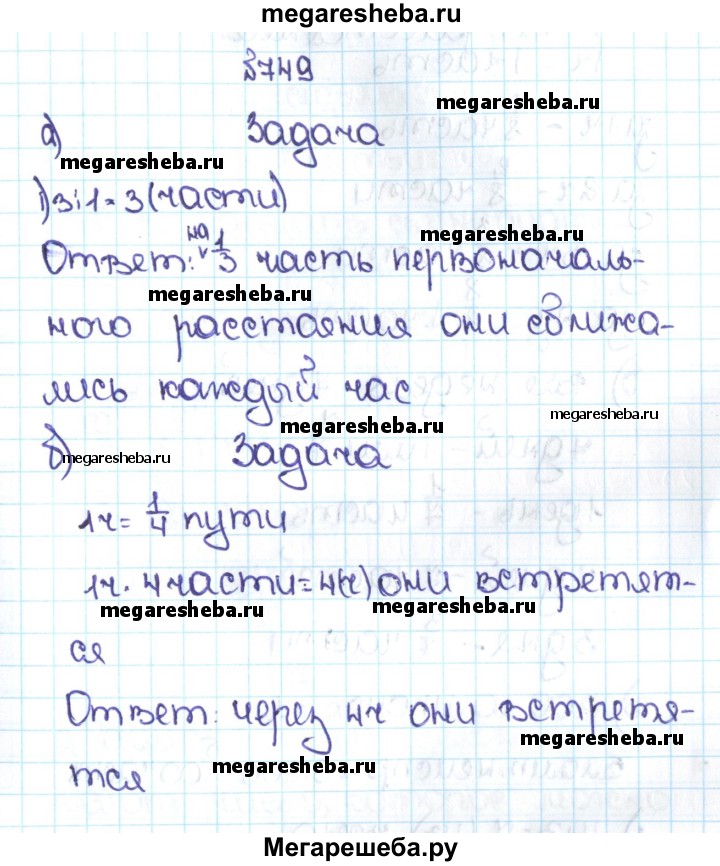 megaresheba.ru
№749
megaresheba.ru
а) Задача
megaresheba.ru
1) 3:1=3(части)
megaresheba.ru
Ответ: на 1/3 часть первоначаль-
megaresheba.ru
ного расстояния они сближа-
лись каждый час
megaresheba.ru
megaresheba.ru
б) Задача
megaresheba.ru
1ч = 1/4 пути
1ч · 4части = 4(ч) они встретят-
megaresheba.ru
megaresheba.ru
ся
Ответ: через 4ч они встретя-
megaresheba.ru
тся
megaresheba.ru
Мегарешеба.ру